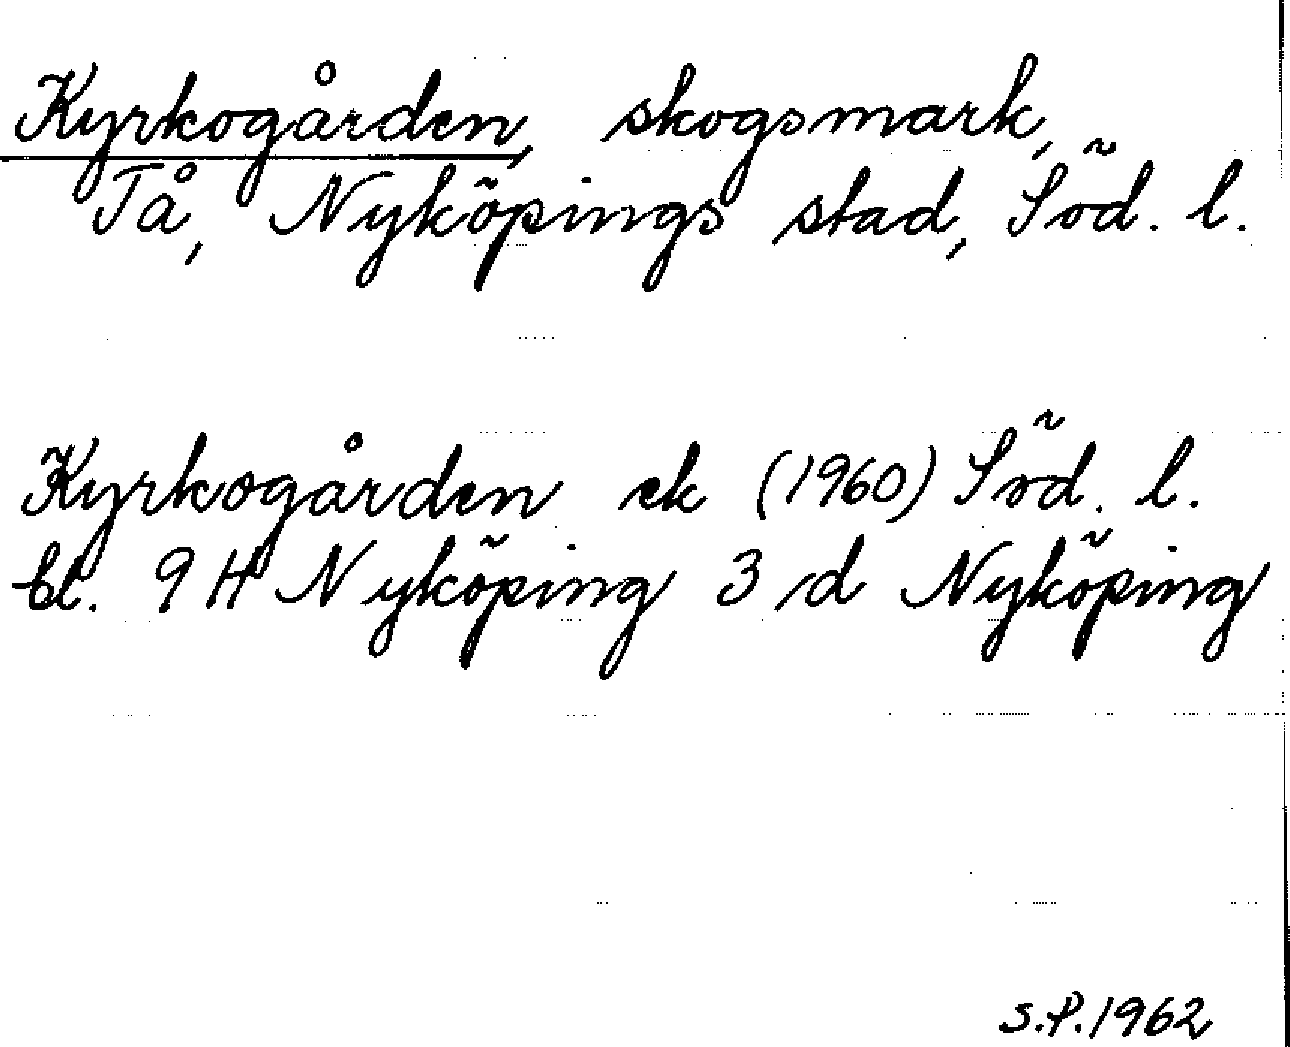 Kyrkogården, skogsmark,
Tå, Nyköpings stad, Söd. l.
Kyrkogården ek (1960) Söd. l.
bl. 9 H Nyköping 3 d Nyköping
S.P. 1962